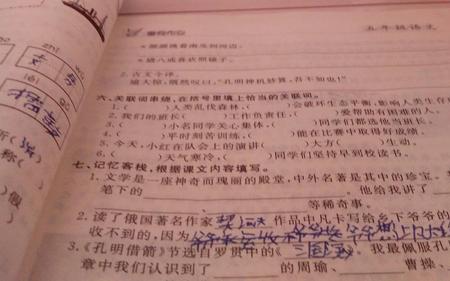 暑假作业 五年级语文
2. 古文今译。
瑜大惊，慨然叹曰：“孔明神机妙算，吾不如也！”
六、关联词串烧，在括号里填上恰当的关联词。
1. ( )人类乱伐森林，( )会破坏生态平衡，影响人类生存
2. 我们的班长( )工作负责任，( )爱帮助有困难的人。
3. ( )小名同学关心集体，( )同学们都选他当班长。
4. ( )平时刻苦训练，( )能在比赛中取得好成绩。
5. 今天，小红在队会上的演讲( )大方( )生动。
6. ( )天气寒冷，( )同学们坚持早到校读书。
七、记忆客栈，根据课文内容填写。
1. 文学是一座神奇而瑰丽的殿堂，中外名著是其中的珍宝。
笔下的 他给我讲了
等稀奇事。
2. 读了俄国著名作家 作品中凡卡写给乡下爷爷的
收不到的，因为
3. 《孔明借箭》节选自罗贯中的《三国演义》。我最佩服孔
章中我们认识到了 的周瑜、 曹操、